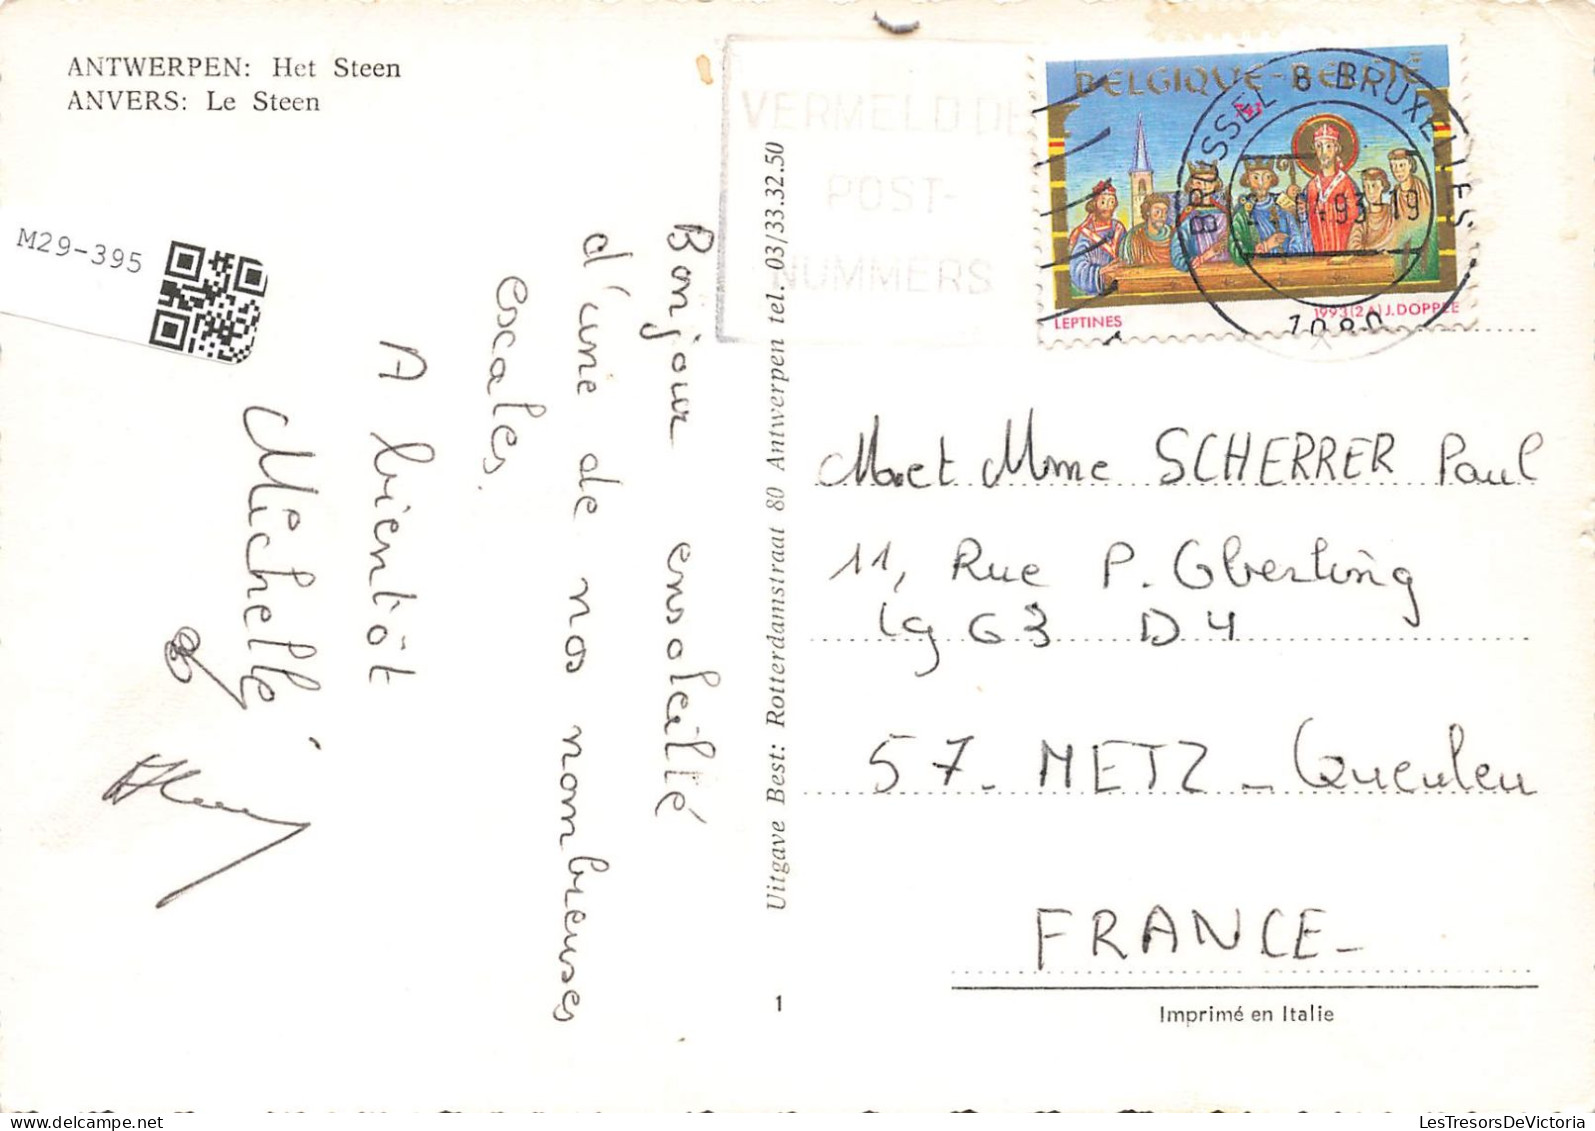 ANTWERPEN: Het Steen
ANVERS: Le Steen
M29-395
Bonjour ensoleillé
d'une de nos nombreuses
escales.
A bientôt
Michelle
Uitgave Best: Rotterdamstraat 80 Antwerpen tel. 03/33.32.50
1
VERMELD DE
POST-
NUMMERS
BELGIQUE-BELGIË
LEPTINES
1993(2A)J.DOPPÉE
BRUSSEL B BRUXELLES
93-19
1080
M et Mme SCHERRER Paul
11, Rue P. Oberling
D4
57-METZ-Queuleu
FRANCE-
Imprimé en Italie
LesTresorsDeVictoria